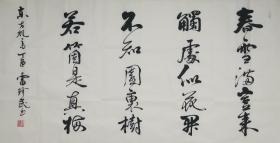 春雪滿空來
觸處似花開
不知園裏樹
若箇是真梅
東方虬 丁酉 雷珍民